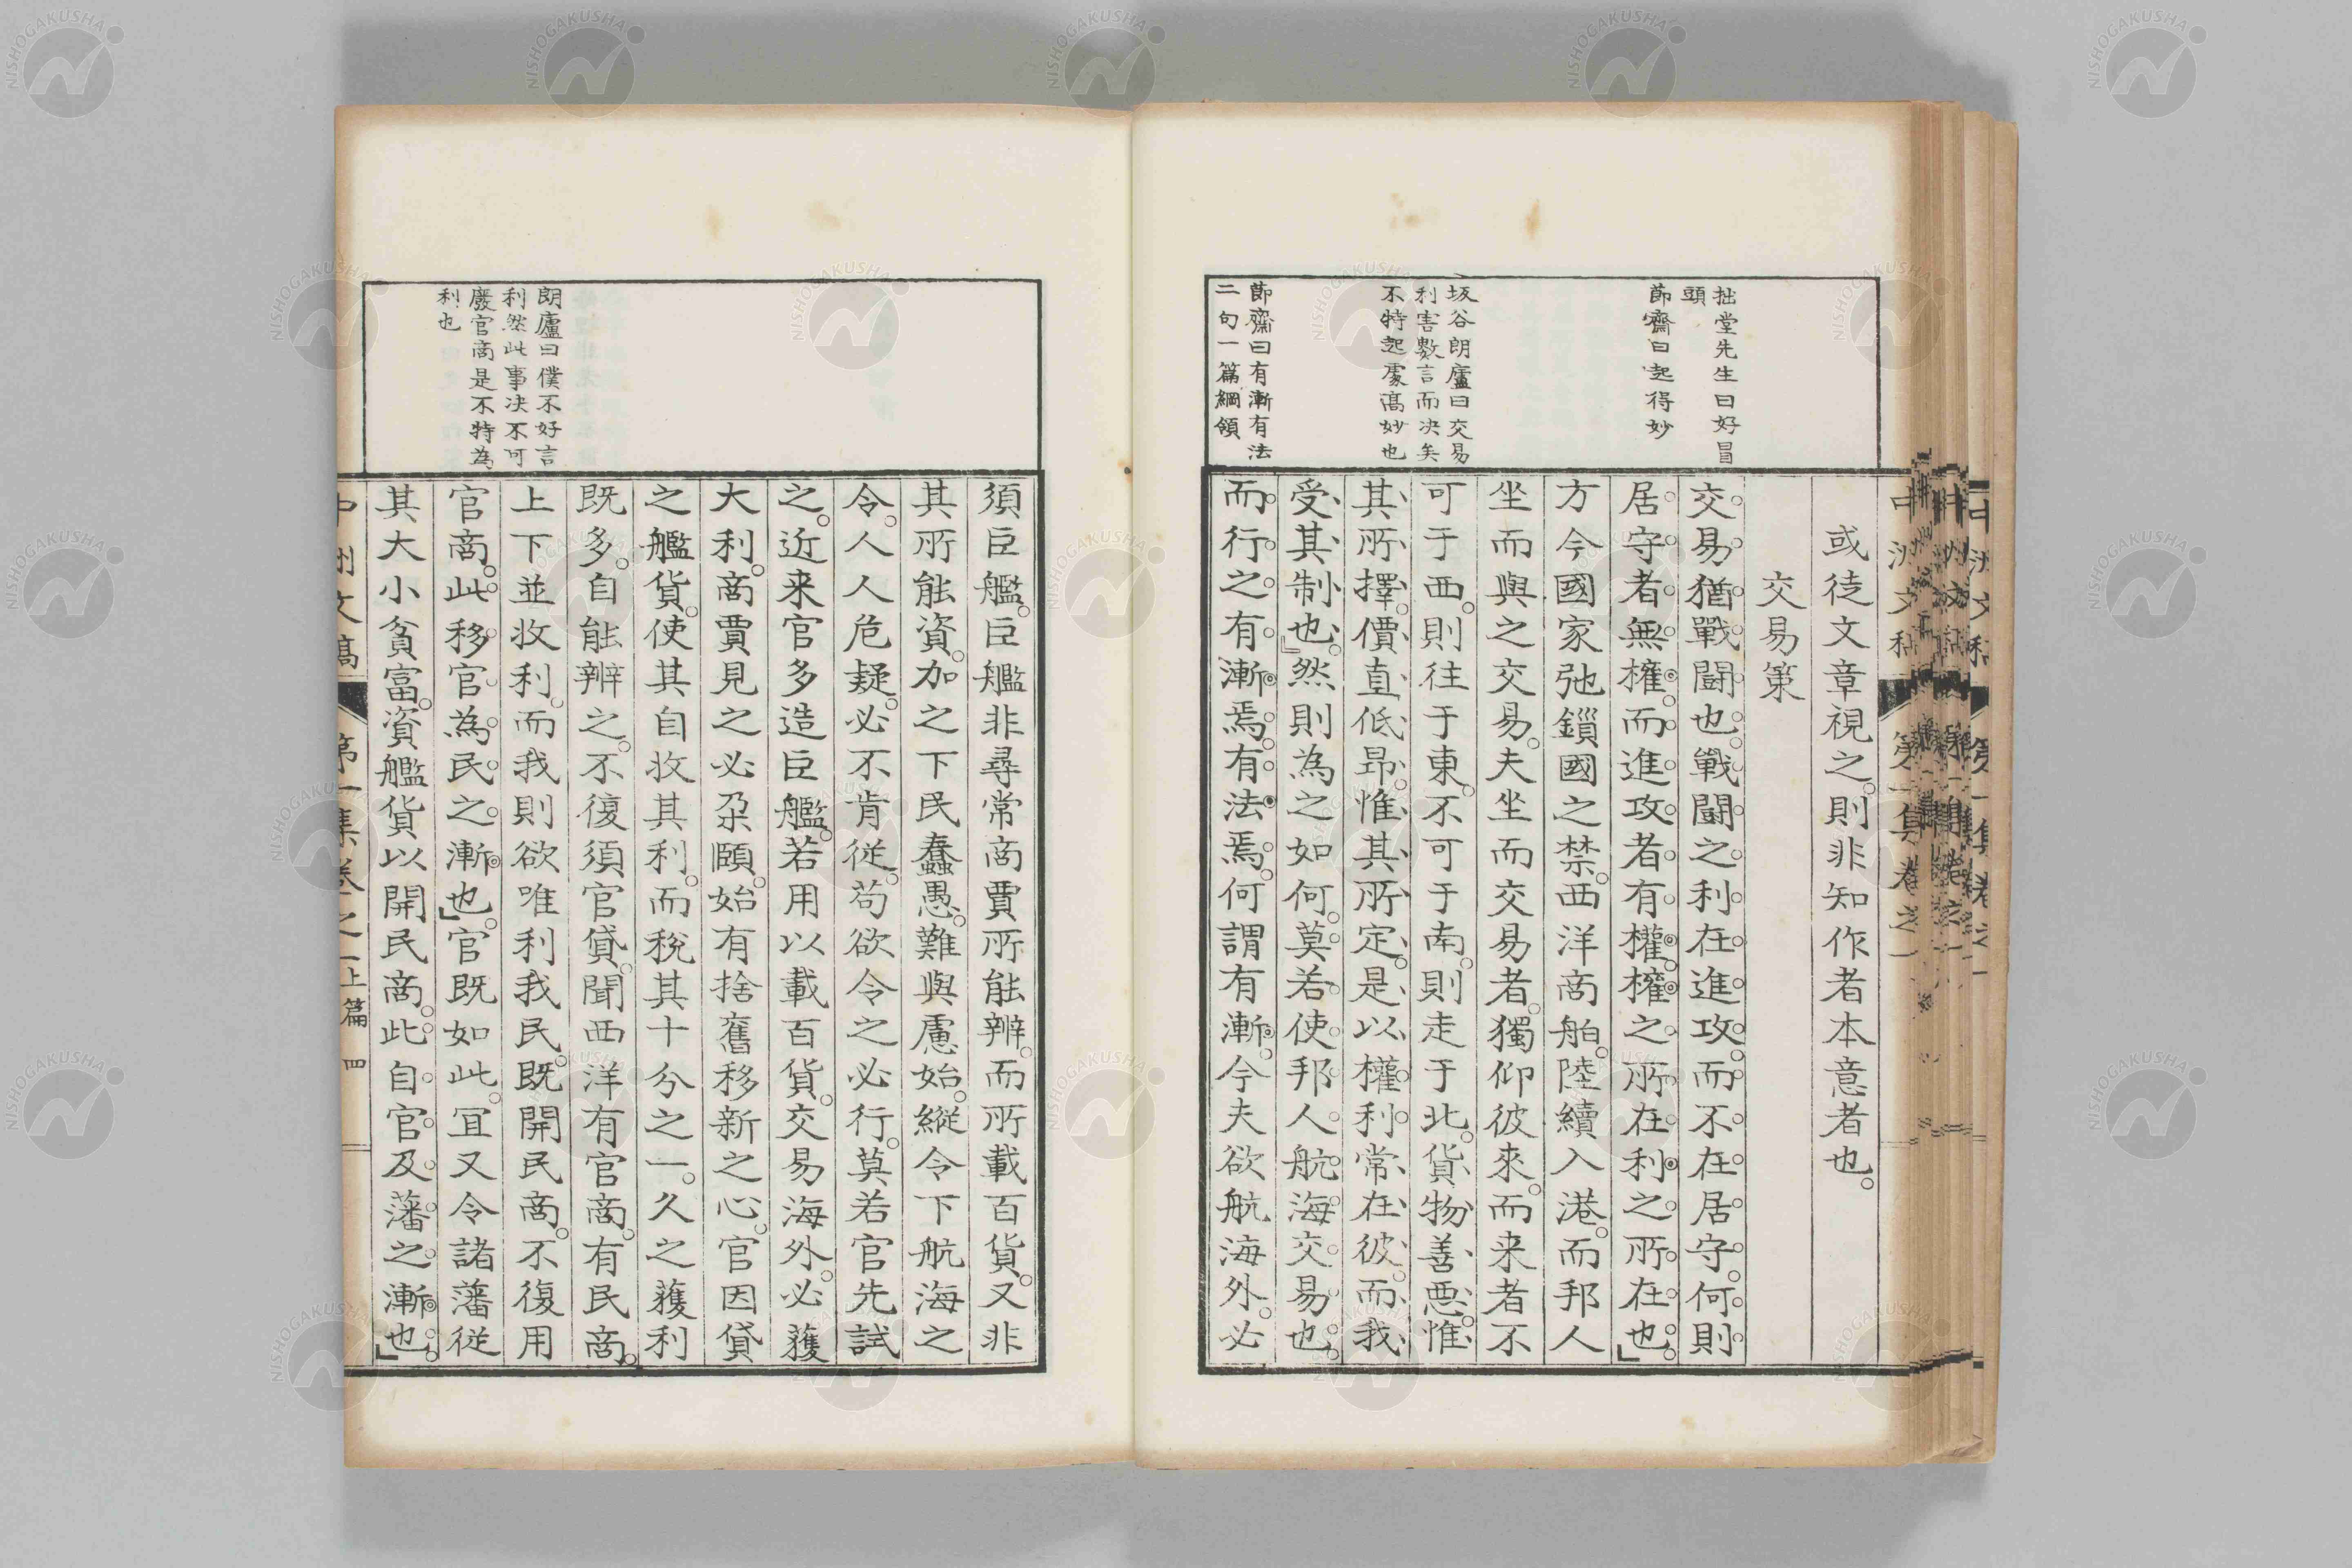 拙堂先生曰好冒
頭
節齋曰起得妙
坂谷朗廬曰交易
利害數言而决矣
不特起處高妙也
節齋曰有漸有法
二句一篇綱領
或徒文章視之。則非知作者本意者也。
交易策
交易猶戰鬪也。戰鬪之利在進攻。而不在居守。何則
居守者無權。而進攻者有權。權之所在。利之所在也。」
方今國家弛鎖國之禁。西洋商舶。陸續入港。而邦人
坐而與之交易。夫坐而交易者。獨仰彼來。而来者不
可于西。則往于東。不可于南。則走于北。貨物善惡。惟
其所擇。價直低昂。惟其所定。是以權利常在彼。而我
受其制也。」然則為之如何。莫若使邦人航海交易也。
而行之有漸焉。有法焉。何謂有漸。今夫欲航海外。必
朗廬曰僕不好言
利然此事决不可
廢官商是不特為
利也
須巨艦。巨艦非尋常商賈所能辨。而所載百貨。又非
其所能資。加之下民蠢愚。難與慮始。縱令下航海之
令。人人危疑。必不肯從。苟欲令之必行。莫若官先試
之。近来官多造巨艦。若用以載百貨。交易海外。必獲
大利。商賈見之必朶頤。始有捨舊移新之心。官因貸
之艦貨。使其自收其利。而稅其十分之一。久之獲利
既多。自能辨之。不復須官貸。聞西洋有官商。有民商。
上下並收利。而我則欲唯利我民。既開民商。不復用
官商。此移官為民之漸也。」官既如此。宜又令諸藩從
其大小貧富。資艦貨以開民商。此自官及藩之漸也。」
中洲文稿
第一集卷之一上篇
四